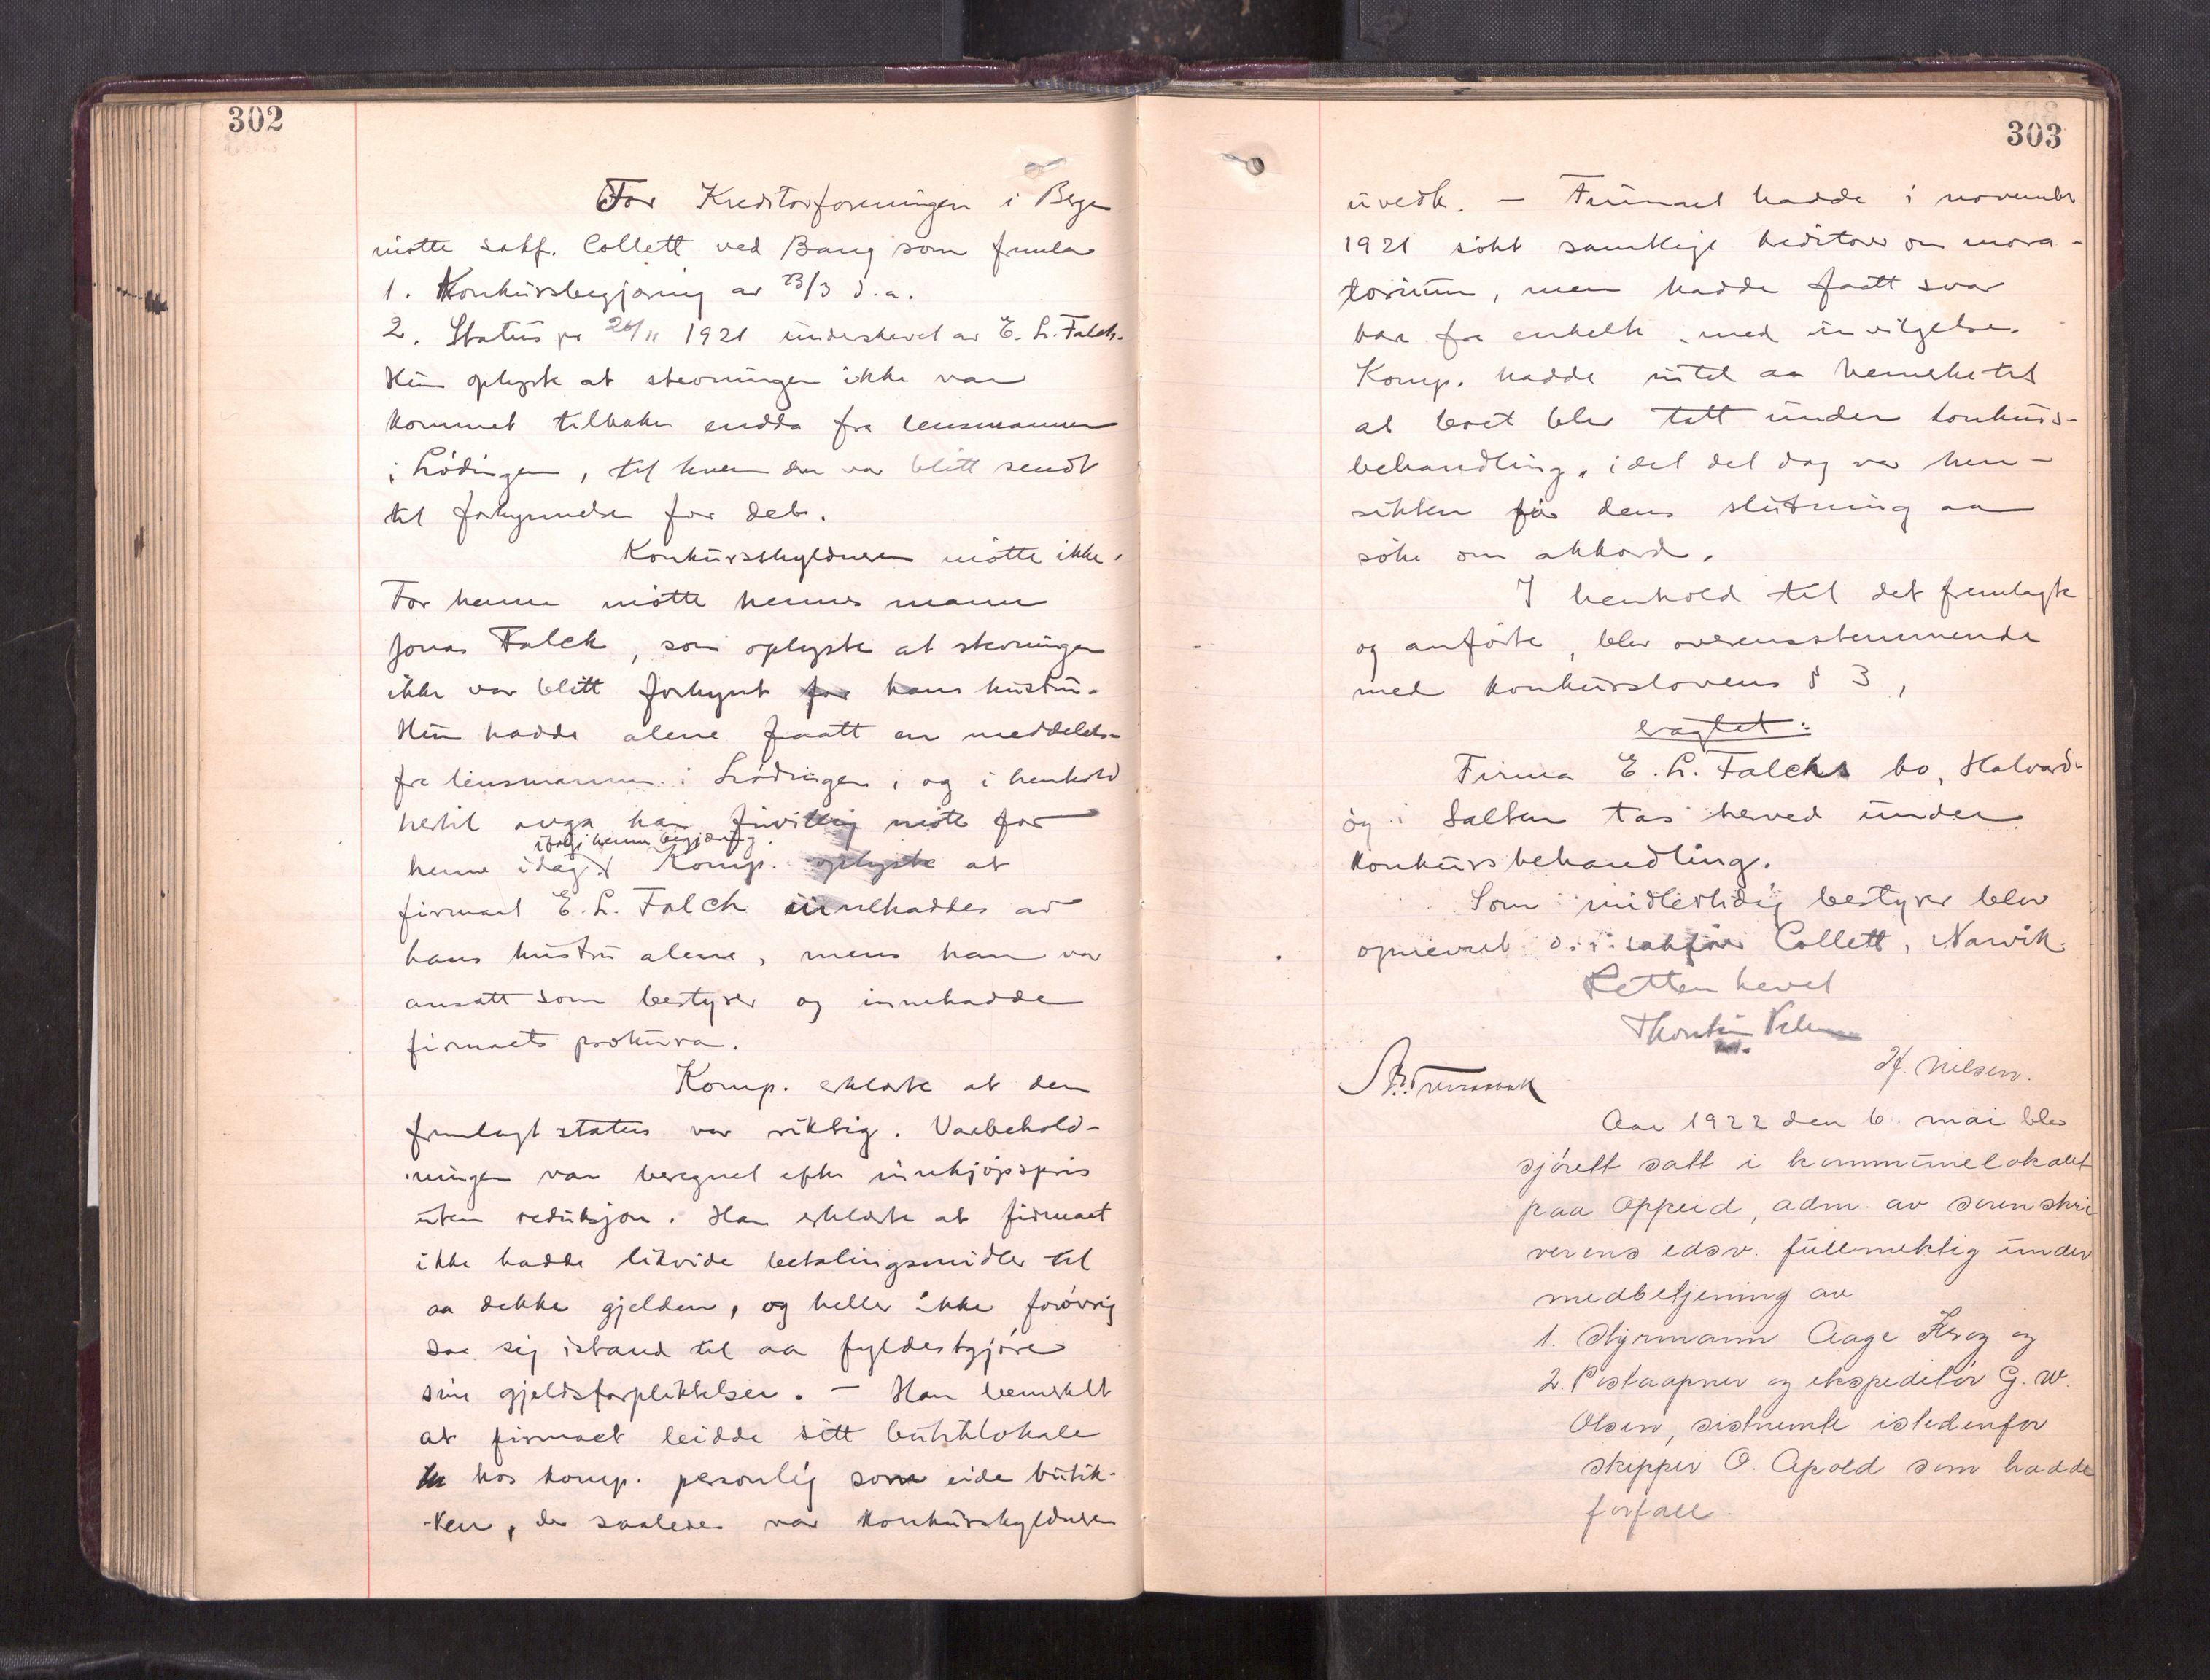 302
For Kreditorforeningen i Bergen
møtte sakf. Collett ved Bang som fremla
1. Konkursbegjæring av 23/3 d.a.
2. Status pr 26/11 1921 underskrevet av E. L. Falch.
Hun oplyste at stevningen ikke var
kommet tilbake endda fra lensmannen
i Lødingen, til hvem den var blitt sendt
til forkynnelse for deb.
Konkursskyldneren møtte ikke.
For henne møtte hennes mann
Jonas Falch, som oplyste at stevningen
ikke var blitt forkynt for hans hustru.
Hun hadde alene faatt en meddelelse
fra lensmannen i Lødingen, og i henhold
hertil avga han frivillig møte for
ifølge hennes begjæring.
henne idag. Komp. oplyste at
firmaet E. L. Falch innehaddes av
hans hustru alene, mens han var
ansatt som bestyrer og innehadde
firmaets prokura.
Komp. erklærte at den
fremlagt status var riktig. Varebehold-
ningen var beregnet efter innkjøpspris
uten reduksjon. Han erklærte at firmaet
ikke hadde likvide betalingsmidler til
aa dekke gjelden, og heller ikke forøvrig
saa sig istand til aa fyldestgjøre
sine gjeldsforpliktelser. — Han bemerket
at firmaet leidde sitt butiklokale
hos komp. personlig som eide butik-
ken, der saaledes var konkursskyldneren
303
uvedk. — Firmaet hadde i november
1921 søkt samtlige kreditorer om mora-
torium, men hadde faatt svar
bare fra enkelte, med innvilgelse.
Komp. hadde intet aa bemerke til
at boet blev tatt under konkurs-
behandling, idet det dog var hen-
sikten før dens slutning aa
søke om akkord.
I henhold til det fremlagte
og anførte, blev overensstemmende
med konkurslovens § 3,
eragtet:
Firma E. L. Falchs bo, Halvard-
øy i Salten tas herved under
konkursbehandling.
Som midlertidig bestyrer blev
opnevnt o.r. sakfører Collett, Narvik.
Retten hevet
H. Nilsen.
Aar 1922 den 6. mai blev
sjørett satt i kommunelokalet
paa Oppeid, adm. av sorenskri
verens edsv. fullmektig under
medbetjening av
1. Styrmann Aage Krog og
2. Postaapner og ekspeditør G. W.
Olsen, sistnevnte istedenfor
skipper O. Apold som hadde
forfall.